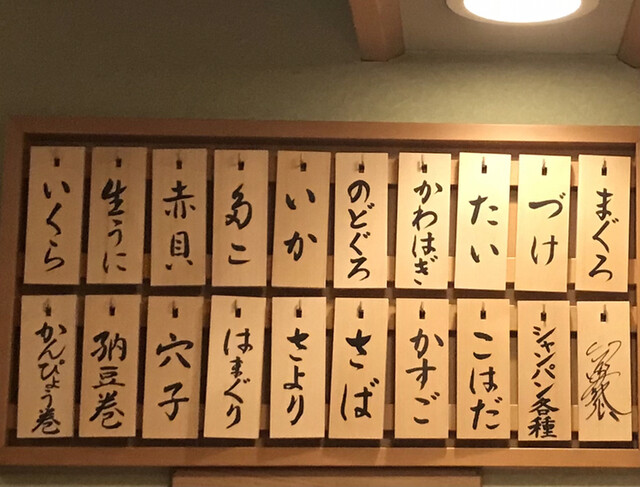 まぐろ
づけ
たい
かわはぎ
のどぐろ
いか
多こ
赤貝
生うに
いくら
シャンパン各種
こはだ
かすご
さば
さより
はまぐり
穴子
納豆巻
かんぴょう巻